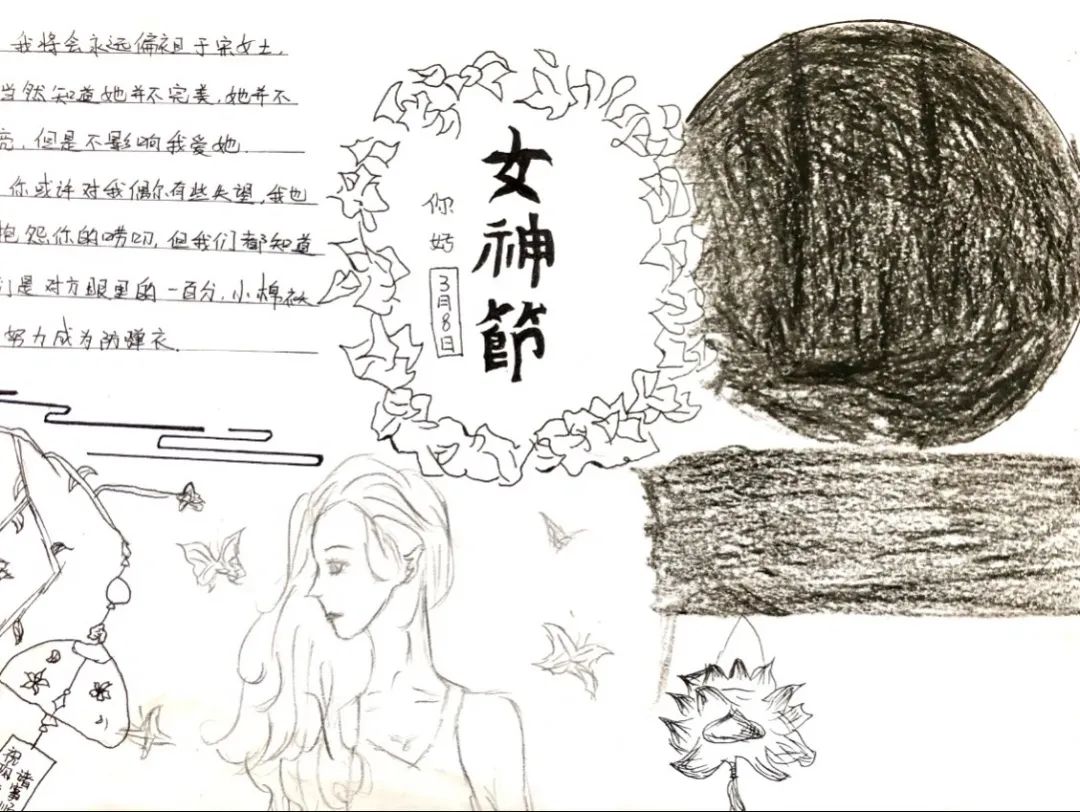 我将会永远偏袒于宋女士，
当然知道她并不完美，她并不
亮，但是不影响我爱她.
你或许对我偶尔有些失望，我也
抱怨你的唠叨，但我们都知道
们是对方眼里的一百分，小棉袄
努力成为防弹衣.
女神節
你好
3月8日
祝
诸事